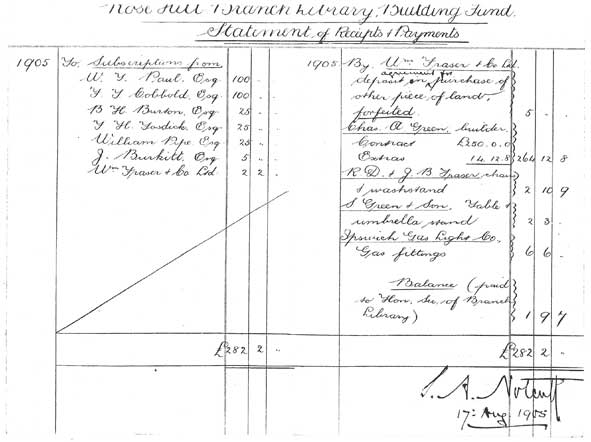 Rose Hill Branch Library, Building Fund.
Statement of Receipts & Payments
1905 To Subscriptions from
W. F. Paul, Esq 100 " "
F. T. Cobbold, Esq 100 " "
B. H. Burton, Esq 25 " "
F. H. Fosdick, Esq 25 " "
William Pipe Esq 25 " "
J. Burkitt, Esq 5 " "
Wm Fraser & Co Ltd 2 2 "
£282 2 "
1905 By Wm Fraser & Co Ltd.
agreement for
deposit on purchase of
other piece of land,
forfeited 5 " "
Chas. A Green, builder
Contract £250.0.0
Extras 14.12.8 264 12 8
R. D. & J. B Fraser chair
& washstand 2 10 9
S Green & Son, Table &
umbrella stand 2 3 "
Ipswich Gas Light Co.
Gas fittings 6 6 "
Balance (paid
to Hon. Sec. of Branch
Library) 1 9 7
£282 2 "
S. A. Notcutt
17th Aug. 1905